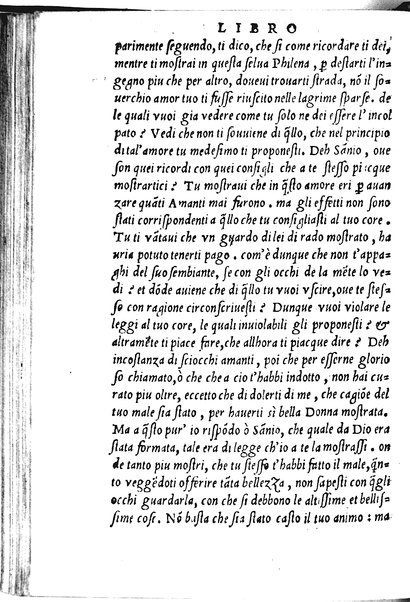 LIBRO
parimente seguendo, ti dico, che si come ricordare ti dei,
mentre ti mostrai in questa selua Philena, ꝑ destarti l'in
gegno piu che per altro, doueui trouarti strada, nō il so
uerchio amor tuo ti fusse riuscito nelle lagrime sparse. de
le quali vuoi gia vedere come tu solo ne dei essere l'incol
pato? Vedi che non ti souuiene di q̃llo, che nel principio
di tal'amore tu medesimo ti proponesti. Deh Sānio, oue
son quei ricordi con quei consigli che a te stesso piacque
mostrartici? Tu mostraui che in q̃sto amore eri ꝑ auan
zare quāti Amanti mai furono. ma gli effetti non sono
stati corrispondenti a q̃llo che tu consigliasti al tuo core.
Tu ti vātaui che vn guardo di lei di rado mostrato, ha
uria potuto tenerti pago. com'è dunque che non t'appa
ghi del suo sembiante, se con gli occhi de la mēte lo ve
di? et dōde auiene che di q̃llo tu vuoi vscire, oue te stes
so con ragione circonscriuesti? Dunque vuoi violare le
leggi al tuo core, le quali inuiolabili gli proponesti? &
altramēte ti piace fare, che allhora ti piacque dire? Deh
incostanza di sciocchi amanti, poi che per esserne glorio
so chiamato, ò che che a cio t'habbi indotto, non hai cu
rato piu oltre, eccetto che di dolerti di me, che cagiōe del
tuo male sia stato, per hauerti sì bella Donna mostrata.
Ma a q̃sto pur' io rispōdo ò Sānio, che quale da Dio era
stata formata, tale era di legge ch'io a te la mostrassi. on
de tanto piu mostri, che tu stesso t'habbi fatto il male, q̃n
to veggēdoti offerire tāta bellezza, non sapesti con q̃gli
occhi guardarla, con che si debbono le altissime et bellis
sime cose. Nō basta che sia stato casto il tuo animo: ma